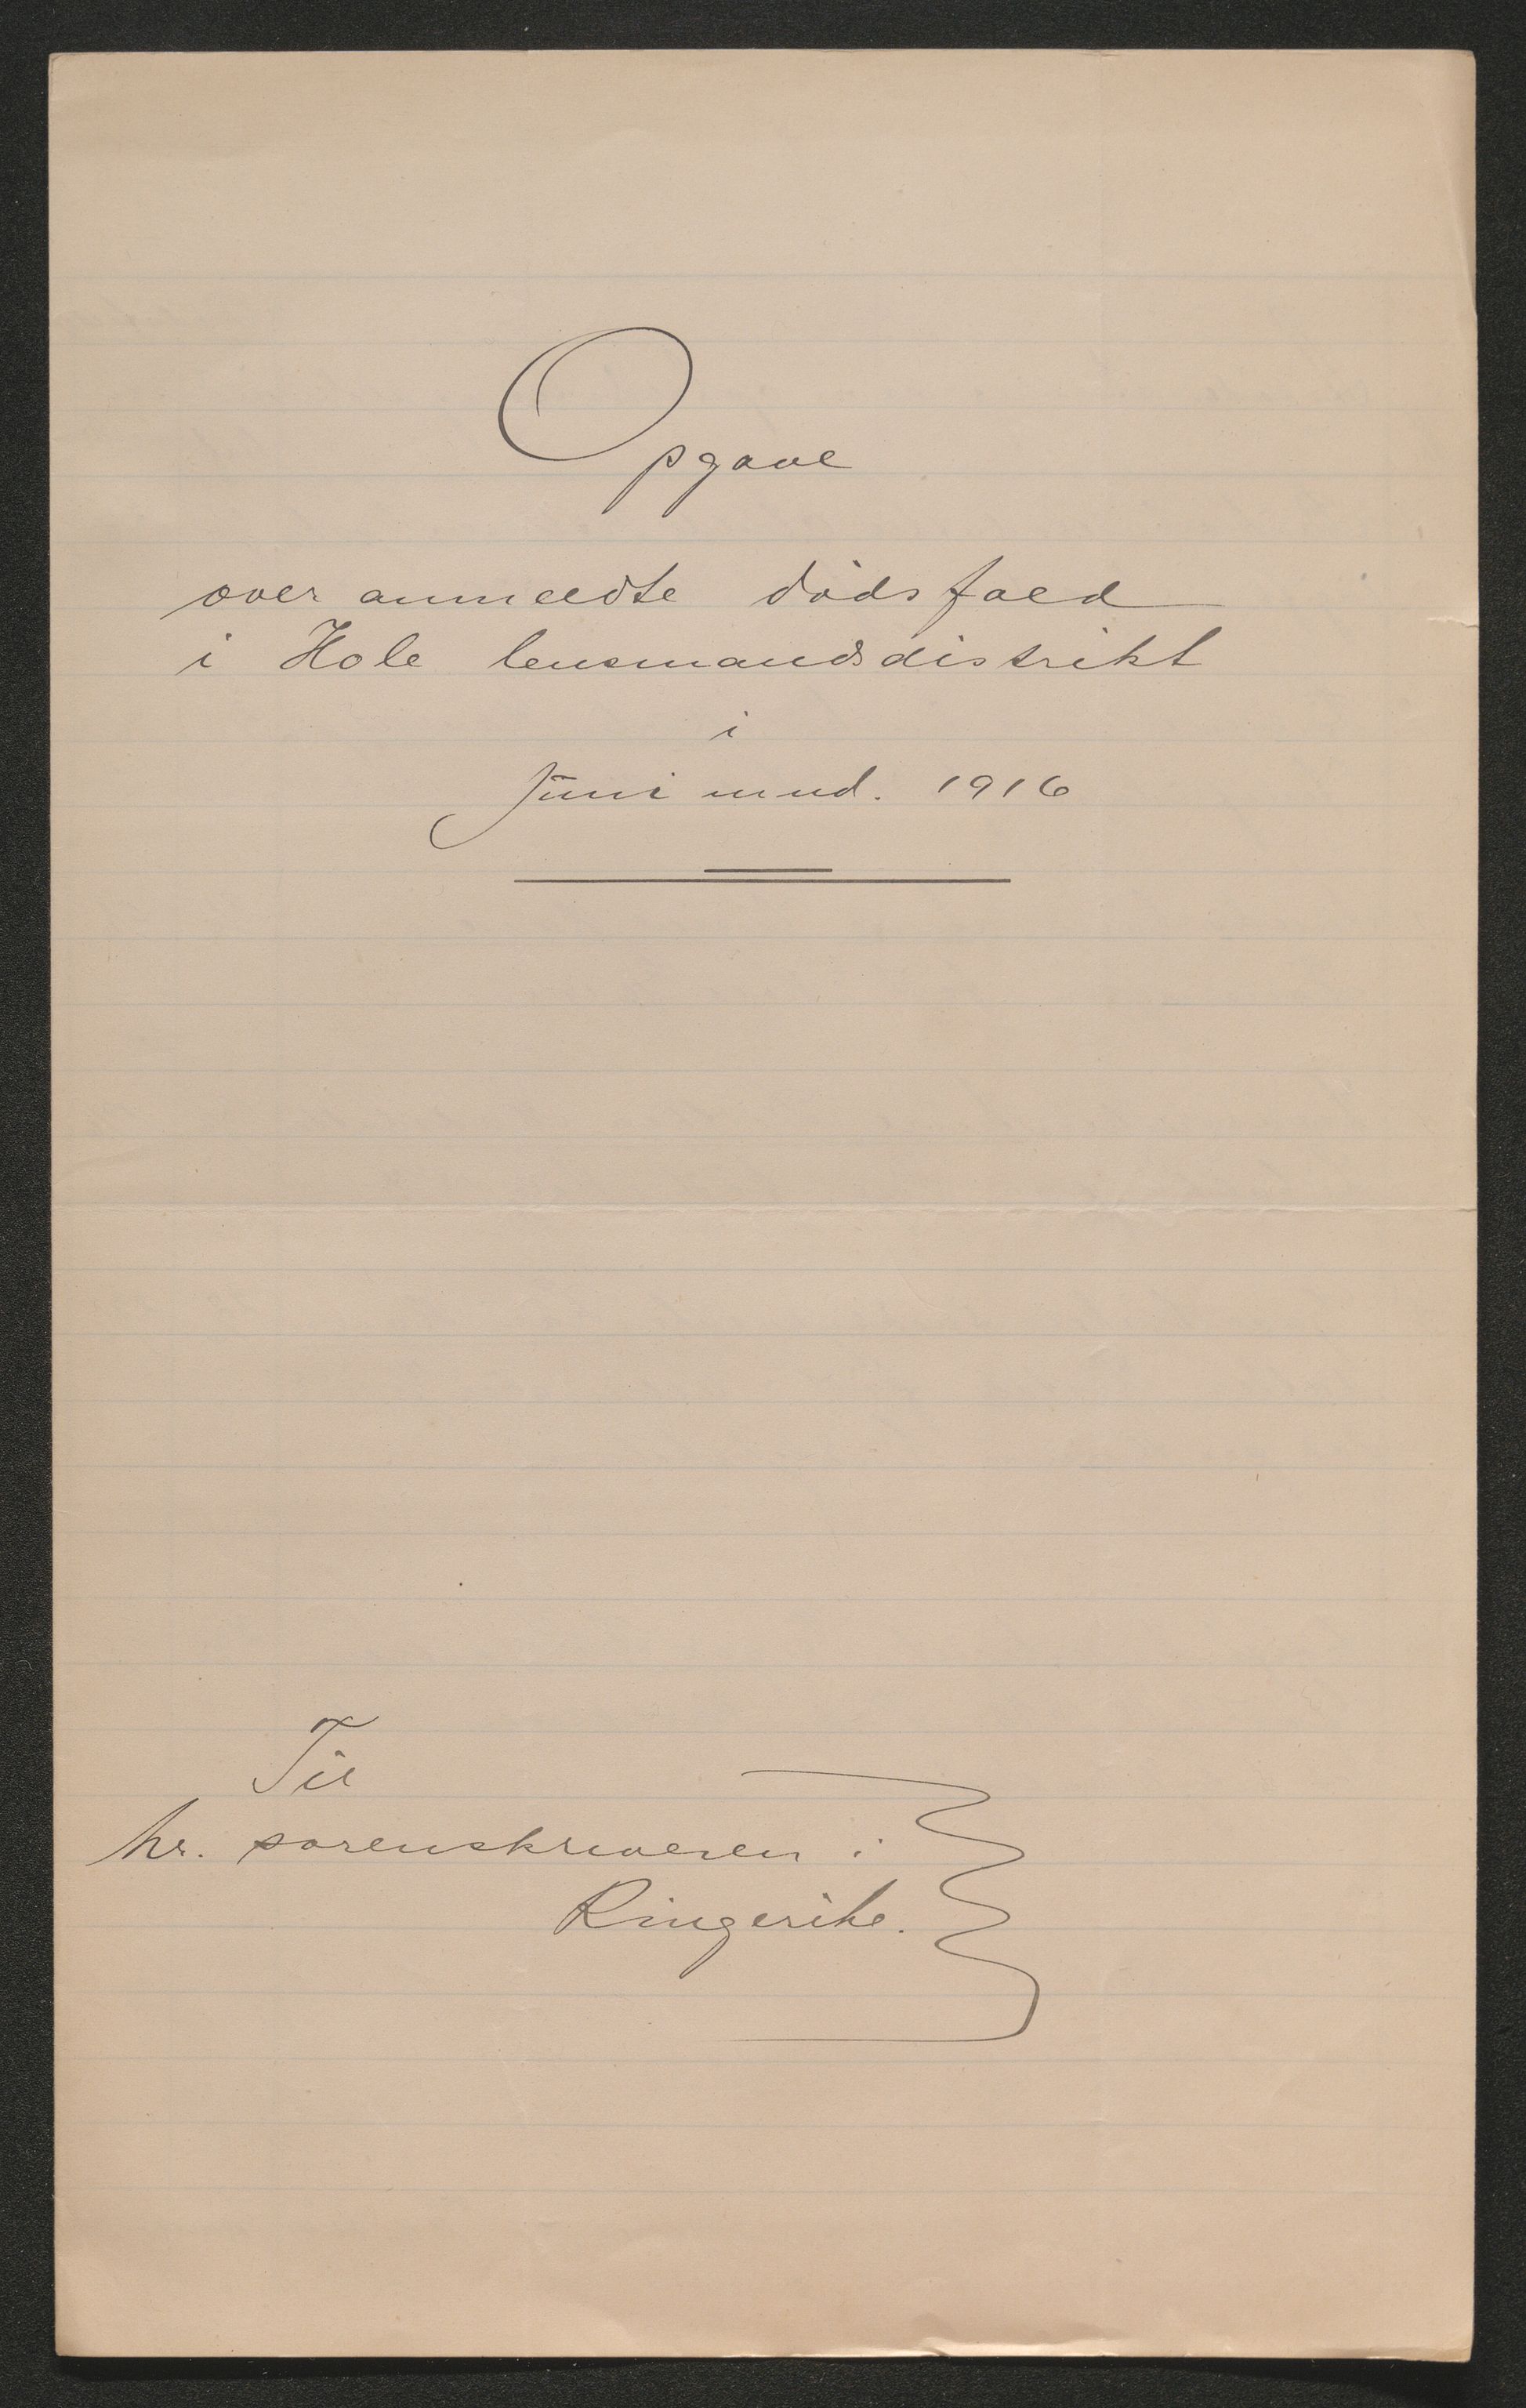 Opgave
over anmeldte dödsfald
i Hole lensmandsdistrikt
i
Juni mnd. 1916
Til
hr. sorenskriveren i
Ringerike.